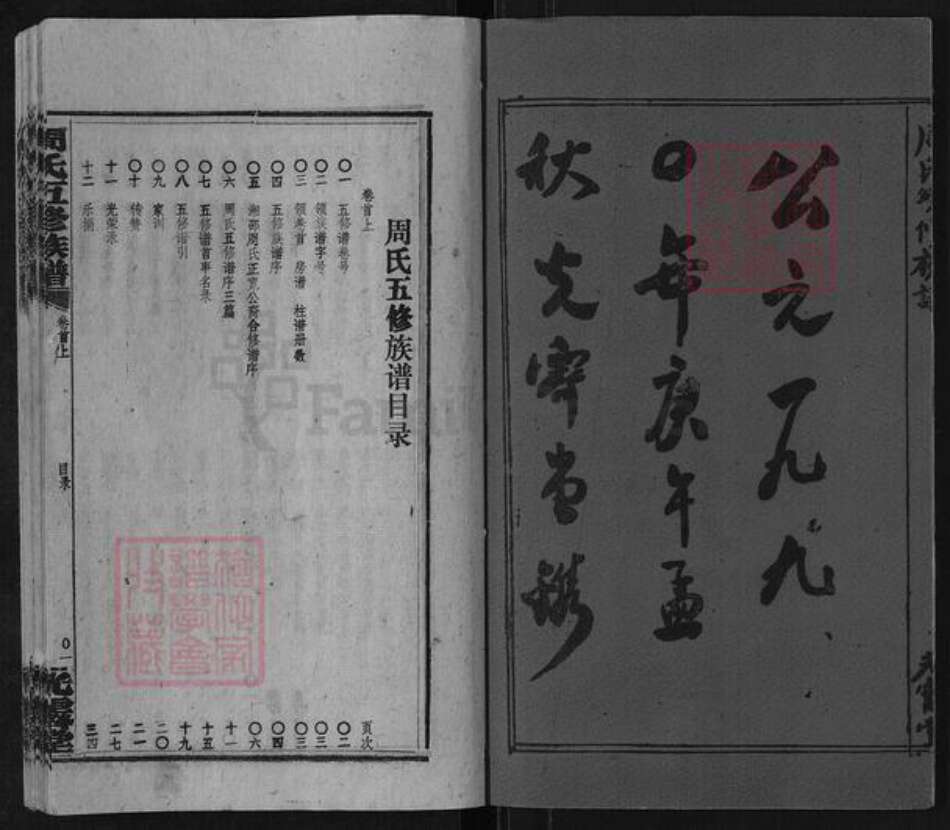 公元一九九
〇年庚午孟
秋光霁堂镌
周氏五修族谱目录
卷首上 页次
〇一 五修谱卷号 〇二
〇二 领修谱字号 〇三
〇三 领卷首 房谱 柱谱册数 〇三
〇四 五修族谱序 〇四
〇五 湘邵周氏正宽公裔合修谱序 〇六
〇六 周氏五修谱序三篇 十一
〇七 五修谱首事名录 十五
〇八 五修谱引 十九
〇九 家训 二〇
〇十 传赞 二一
十一 光荣录 二七
十二 乐捐 三四
周氏五修族谱
卷首上
目录
〇一
光霁堂